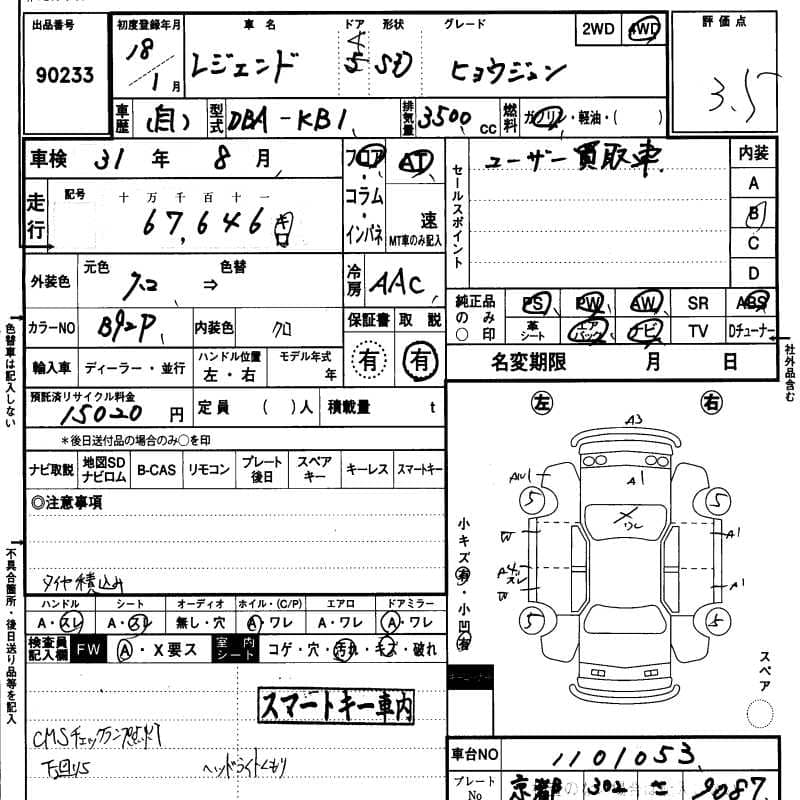 出品番号
90233
初度登録年月
18
/1月
車名
レジェンド
ドア 形状
4
5 SD
グレード
ヒョウジュン
2WD 4WD
評価点
3.5
車歴 (自) 型式 DBA-KB1 排気量 3500 cc 燃料 ガソリン・軽油・( )
車検 31年 8月
フロア・コラム・インパネ
AT
速
MT車のみ記入
セールスポイント
ユーザー買取車
内装
A
B
C
D
走行
記号 十 万 千 百 十 一
67,646 キロ
外装色 元色 クロ ⇒ 色替
冷房 AAC
カラーNO B92P 内装色 クロ
保証書 取説
有 有
純正品の○ み印
PS PW AW SR ABS
革シート エアバック ナビ TV Dチューナー
名変期限 月 日
輸入車 ディーラー・並行 ハンドル位置 左・右 モデル年式 年
預託済リサイクル料金
15020円 定員 ( )人 積載量 t
*後日送付品の場合のみ○を印
ナビ取説 地図SDナビロム B-CAS リモコン プレート後日 スペアキー キーレス スマートキー
◎注意事項
タイヤ積込み
ハンドル シート オーディオ ホイル・(C/P) エアロ ドアミラー
A・スレ A・スレ 無し・穴 A・ワレ A・ワレ A・ワレ
検査員記入欄 FW A・X要ス 室内シート コゲ・穴・汚れ・キズ・破れ
スマートキー車内
ヘッドライトくもり
色替車は記入しない
不具合箇所・後日送り品等を記入
社外品含む
左 右
A3
A1
AW1
5 5
ワレ
W
A1
スレ
W
A1
5 5
小キズ有・小凹有
スペア
車台NO 1101053
プレートNo 京都 302 さ 9087